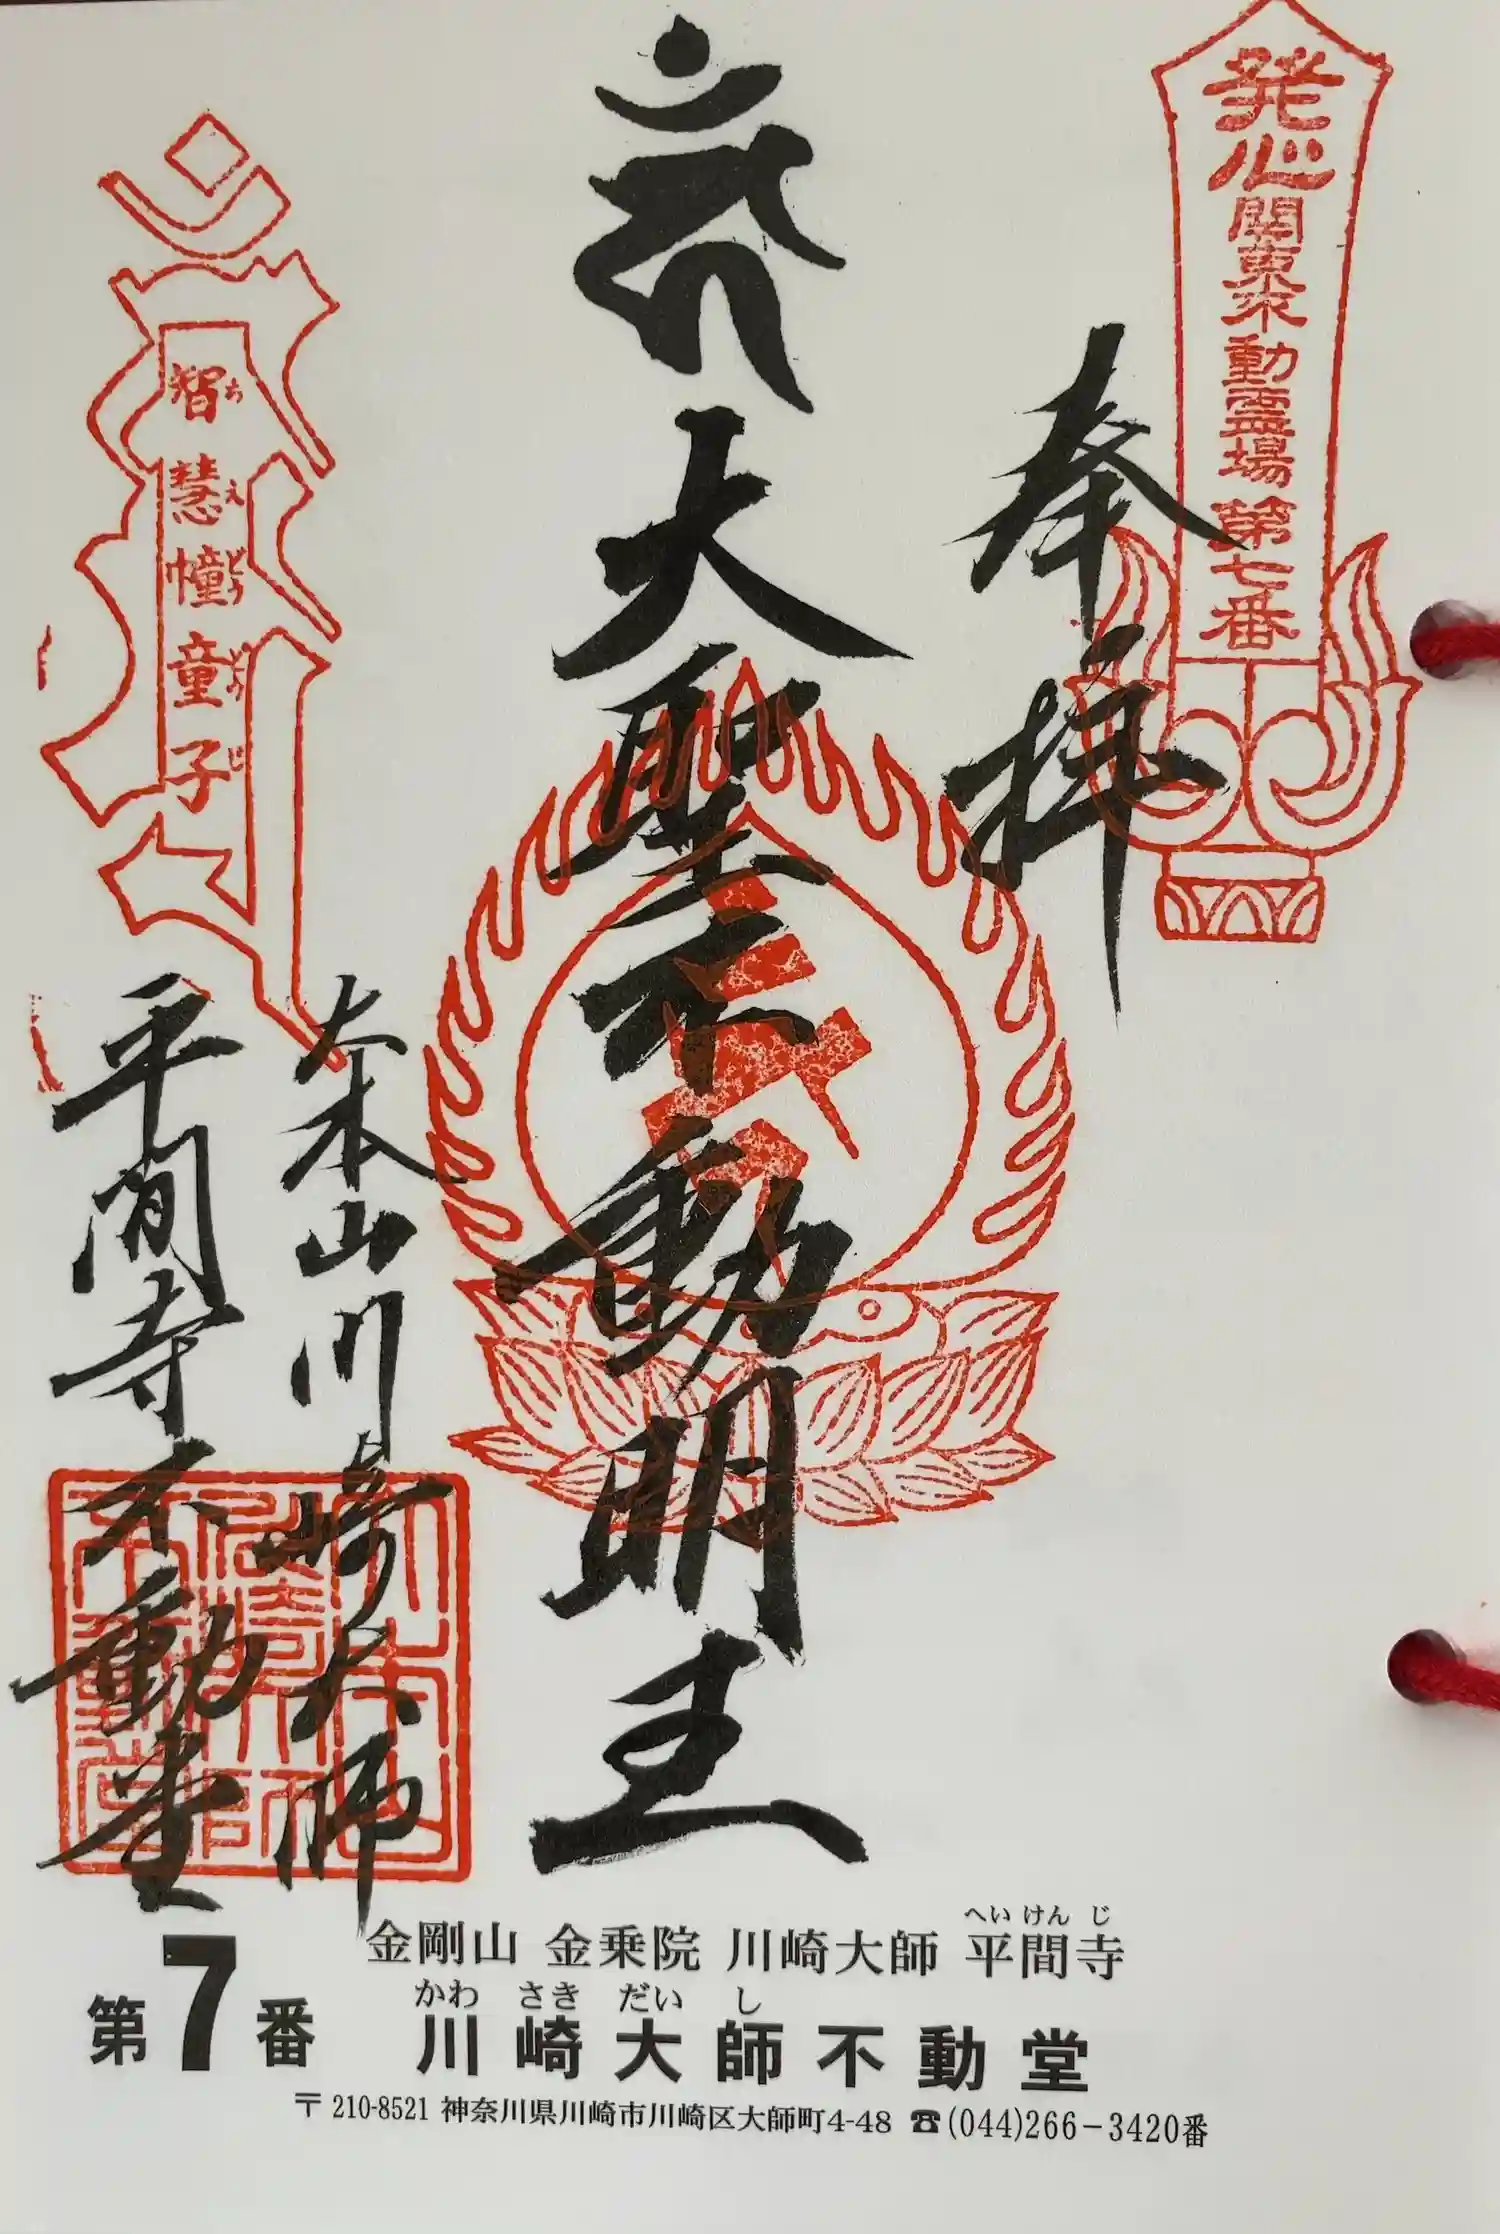 発心関東不動霊場第七番
奉拝
大聖不動明王
智慧幢童子
ちえどうどうじ
大本山川崎大師
平間寺不動堂
へいけんじ
金剛山 金乗院 川崎大師 平間寺
かわさきだいし
第7番 川崎大師不動堂
〒210-8521 神奈川県川崎市川崎区大師町4-48 ☎(044)266-3420番